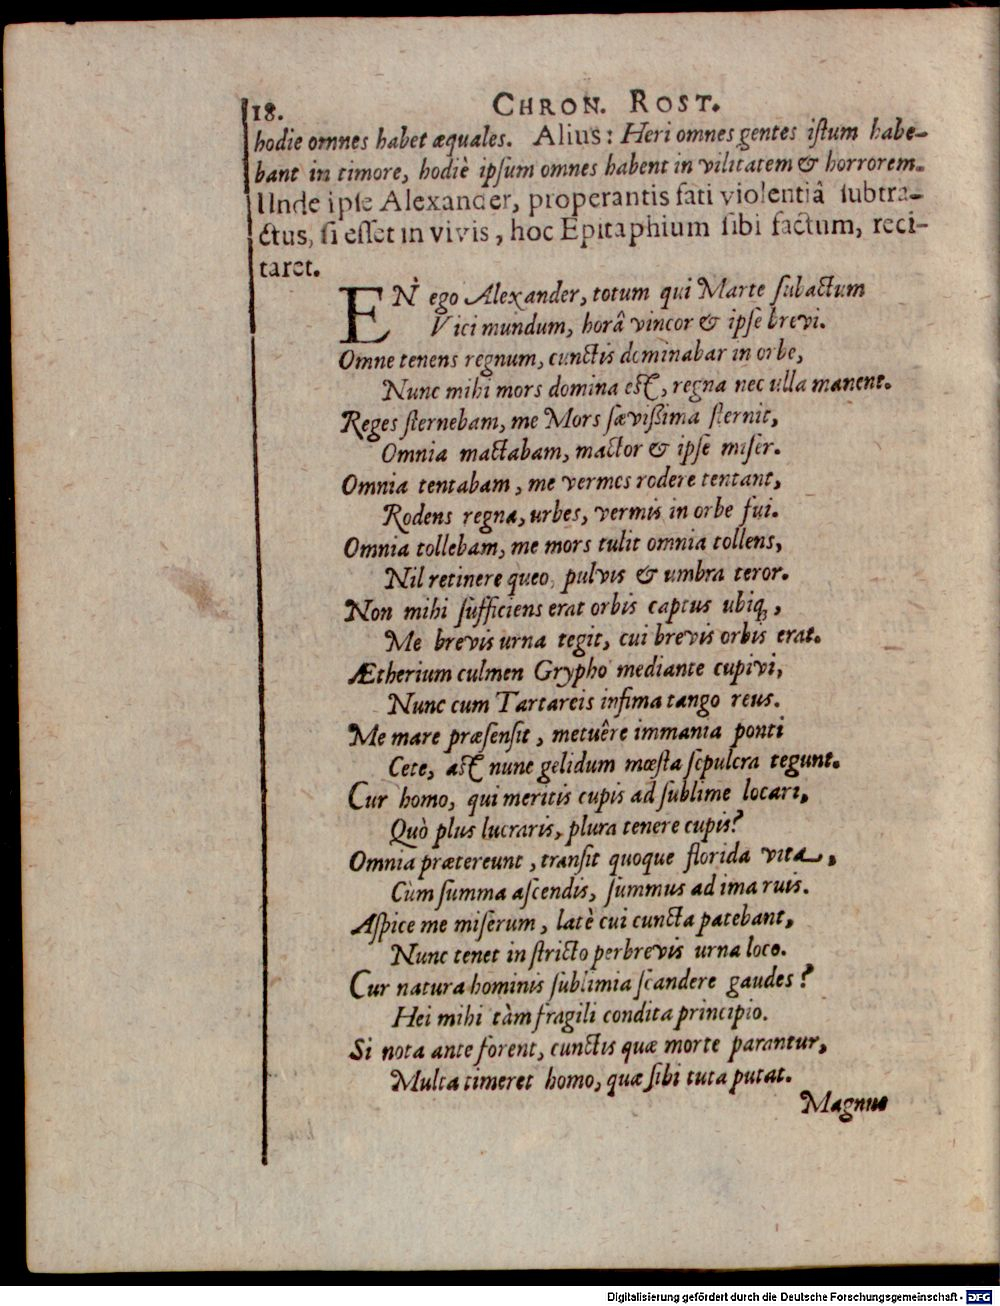 18.
CHRON. ROST.
hodie omnes habet æquales. Alius: Heri omnes gentes iſtum habe-
bant in timore, hodiè ipſum omnes habent in vilitatem & horrorem.
Unde ipſe Alexander, properantis fati violentiâ ſubtra-
ctus, ſi eſſet in vivis, hoc Epitaphium ſibi factum, reci-
taret.
EN ego Alexander, totum qui Marte ſubactum
Vici mundum, horâ vincor & ipſe brevi.
Omne tenens regnum, cunctis dominabar in orbe,
Nunc mihi mors domina eſt, regna nec ulla manent.
Reges ſternebam, me Mors ſæviſſima ſternit,
Omnia mactabam, mactor & ipſe miſer.
Omnia tentabam, me vermes rodere tentant,
Rodens regna, urbes, vermis in orbe fui.
Omnia tollebam, me mors tulit omnia tollens,
Nil retinere queo, pulvis & umbra teror.
Non mihi ſufficiens erat orbis captus ubiq́,
Me brevis urna tegit, cui brevis orbis erat.
Ætherium culmen Grypho mediante cupivi,
Nunc cum Tartareis infima tango reus.
Me mare præſenſit, metuêre immania ponti
Cete, aſt nunc gelidum mœſta ſepulcra tegunt.
Cur homo, qui meritis cupis ad ſublime locari,
Quò plus lucraris, plura tenere cupis?
Omnia prætereunt, tranſit quoque florida vita,
Cùm ſumma aſcendis, ſummus ad ima ruis.
Aſpice me miſerum, latè cui cuncta patebant,
Nunc tenet in ſtricto perbrevis urna loco.
Cur natura hominis ſublimia ſcandere gaudes?
Hei mihi tàm fragili condita principio.
Si nota ante forent, cunctis quæ morte parantur,
Multa timeret homo, quæ ſibi tuta putat.
Magnus
Digitalisierung gefördert durch die Deutsche Forschungsgemeinschaft - DFG